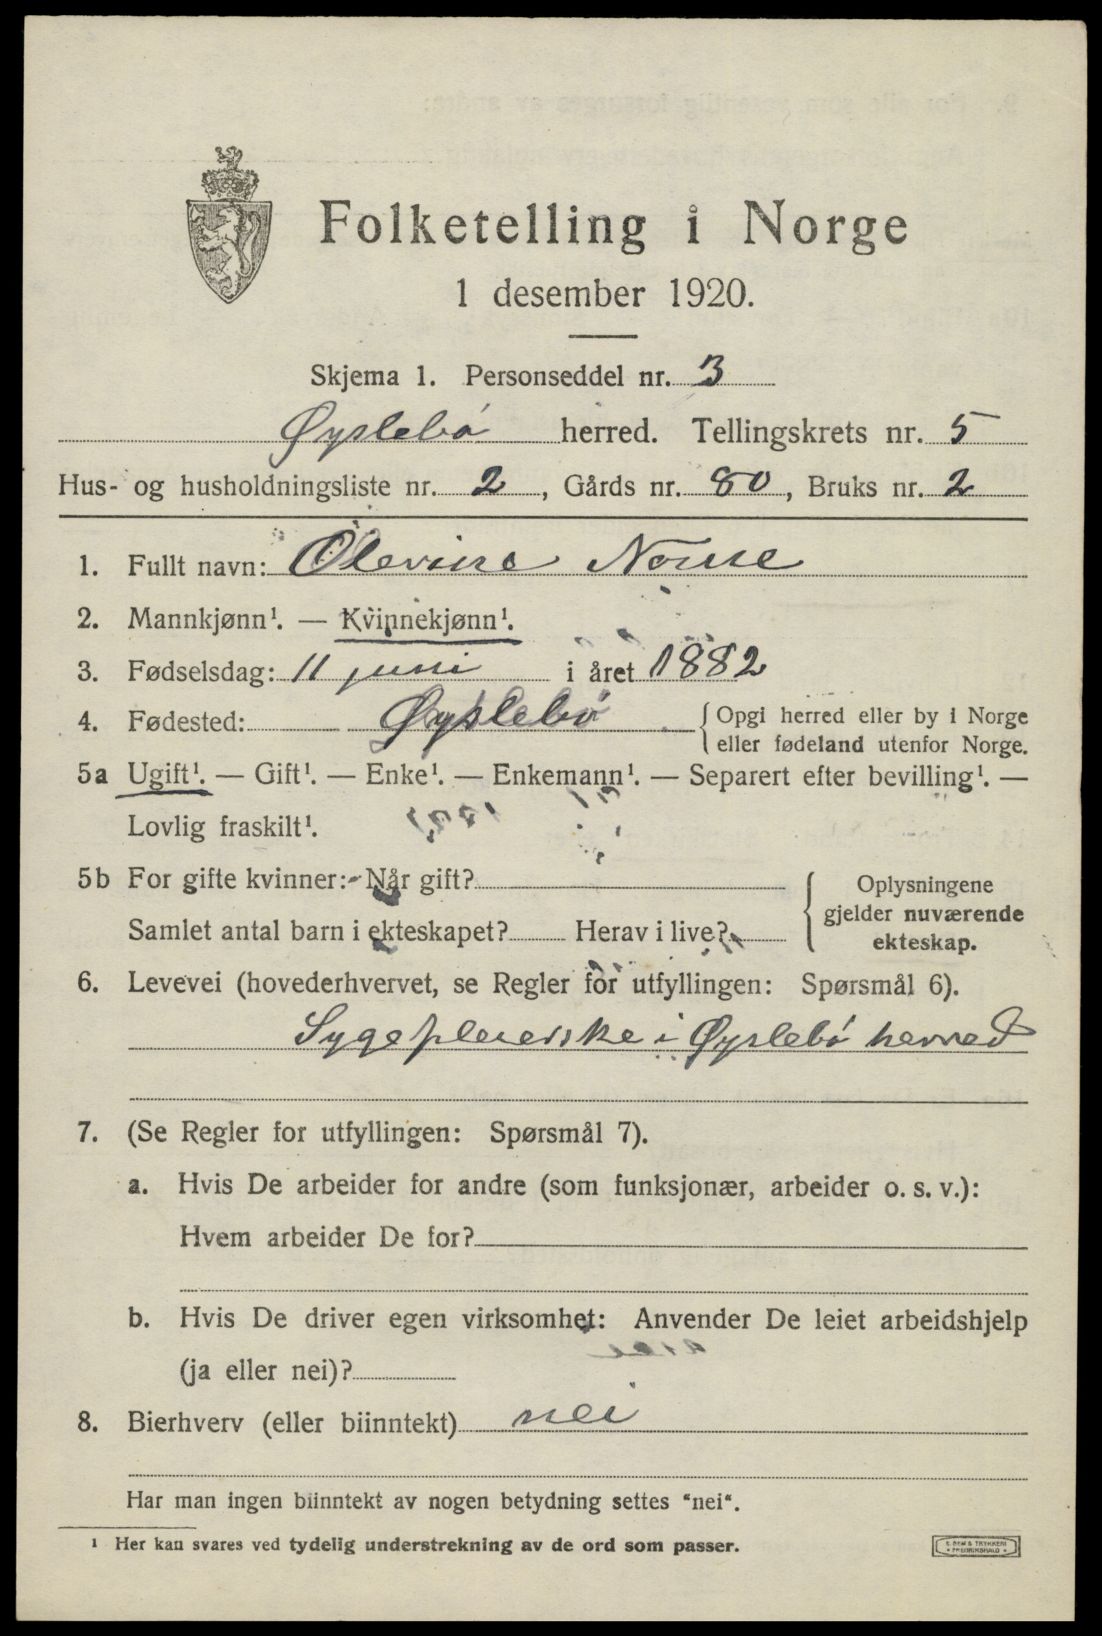 Folketelling i Norge
1 desember 1920.
Skjema 1. Personseddel nr. 3
Øyslebø herred. Tellingskrets nr. 5
Hus- og husholdningsliste nr. 2, Gårds nr. 80, Bruks nr. 2
1. Fullt navn: Olevine Nome
2. Mannkjønn¹. — Kvinnekjønn¹.
3. Fødselsdag: 11 juni i året 1882
4. Fødested: Øyslebø {Opgi herred eller by i Norge
eller fødeland utenfor Norge.
5a Ugift¹. — Gift¹. — Enke¹. — Enkemann¹. — Separert efter bevilling¹. —
Lovlig fraskilt¹.
5b For gifte kvinner: Når gift?
Samlet antal barn i ekteskapet? Herav i live?
{ Oplysningene
gjelder nuværende
ekteskap.
6. Levevei (hovederhvervet, se Regler for utfyllingen: Spørsmål 6).
Sygepleierske i Øyslebø herred
7. (Se Regler for utfyllingen: Spørsmål 7).
a. Hvis De arbeider for andre (som funksjonær, arbeider o. s. v.):
Hvem arbeider De for?
b. Hvis De driver egen virksomhet: Anvender De leiet arbeidshjelp
(ja eller nei)?
8. Bierhverv (eller biinntekt) nei
Har man ingen biinntekt av nogen betydning settes "nei".
¹ Her kan svares ved tydelig understrekning av de ord som passer.